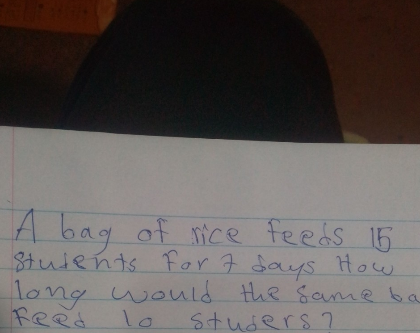 A bag of rice feeds 15
students for 7 days How
long would the same ba
feed 10 studers?